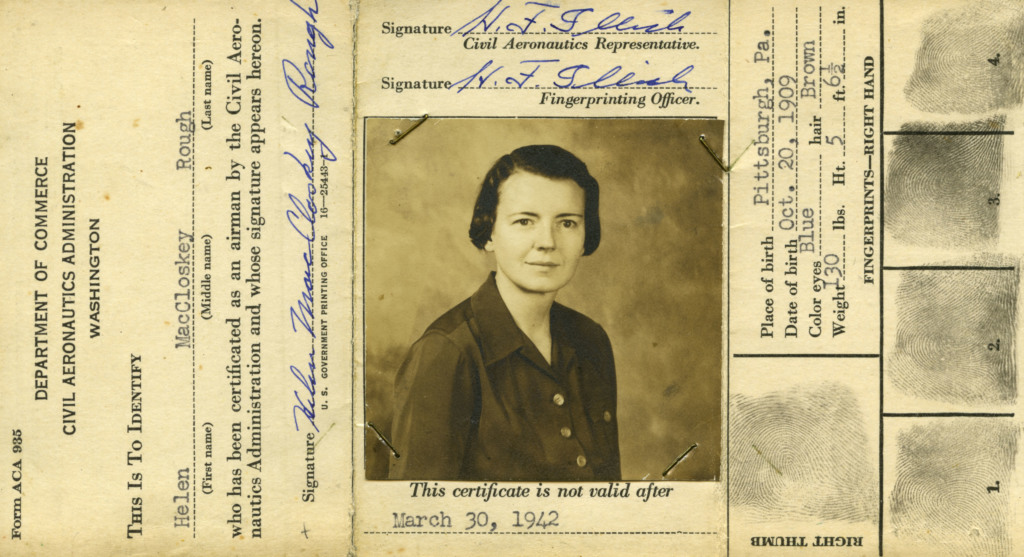 Form ACA 935
DEPARTMENT OF COMMERCE
CIVIL AERONAUTICS ADMINISTRATION
WASHINGTON
THIS IS TO IDENTIFY
Helen MacCloskey Rough
(First name) (Middle name) , (Last name)
who has been certificated as an airman by the Civil Aero-
nautics Administration and whose signature appears hereon.
Signature Helen MacCloskey Rough
U. S. GOVERNMENT PRINTING OFFICE 16—25443-1
Signature H. F.
Civil Aeronautics Representative.
Signature H. F.
Fingerprinting Officer.
This certificate is not valid after
March 30, 1942
Place of birth Pittsburgh, Pa.
Date of birth Oct. 20, 1909
Color eyes Blue hair Brown
Weight 130 lbs. Ht. 5 ft. 6½ in.
FINGERPRINTS—RIGHT HAND
RIGHT THUMB
1.
2.
3.
4.